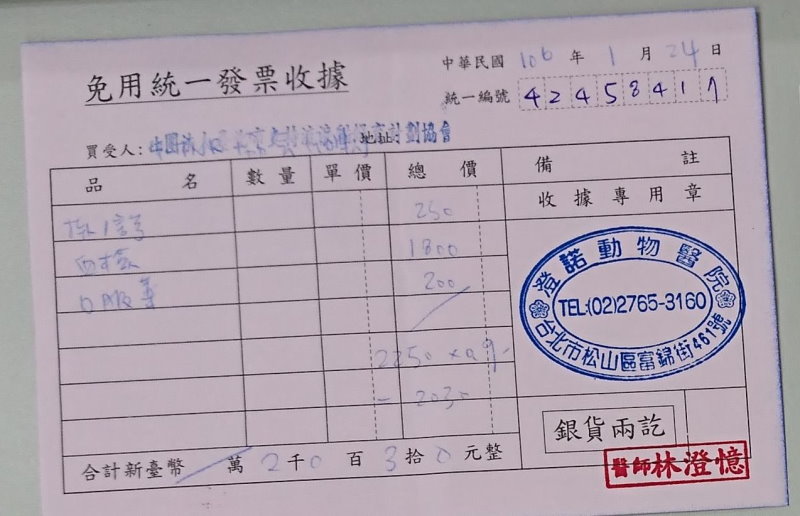 中華民國 106 年 1 月 24 日
免用統一發票收據
統一編號 42458417
買受人: 地址: 計劃協會
品名 數量 單價 總價 備註
收據專用章
掛號 250
血檢 1800
口服藥 200
2250 x 0.9 -
= 2030
澄諾動物醫院
TEL:(02)2765-3160
台北市松山區富錦街461號
銀貨兩訖
合計新臺幣 萬 2 千 0 百 3 拾 0 元整
醫師林澄憶